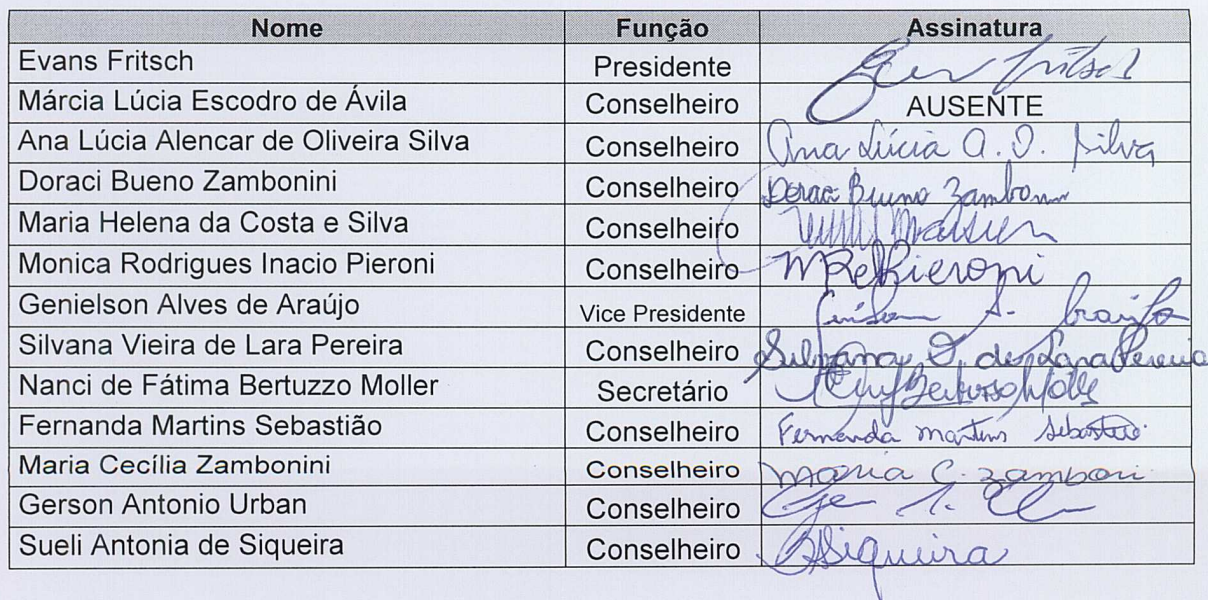 Nome Função Assinatura
Evans Fritsch Presidente Fritsch
Márcia Lúcia Escodro de Ávila Conselheiro AUSENTE
Ana Lúcia Alencar de Oliveira Silva Conselheiro Ana Lúcia A. O. Silva
Doraci Bueno Zambonini Conselheiro Doraci Bueno Zambonini
Maria Helena da Costa e Silva Conselheiro
Monica Rodrigues Inacio Pieroni Conselheiro Pieroni
Genielson Alves de Araújo Vice Presidente A. Araújo
Silvana Vieira de Lara Pereira Conselheiro Silvana V. de Lara Pereira
Nanci de Fátima Bertuzzo Moller Secretário
Fernanda Martins Sebastião Conselheiro Fernanda Martins Sebastião
Maria Cecília Zambonini Conselheiro Maria C. Zamboni
Gerson Antonio Urban Conselheiro
Sueli Antonia de Siqueira Conselheiro Siqueira